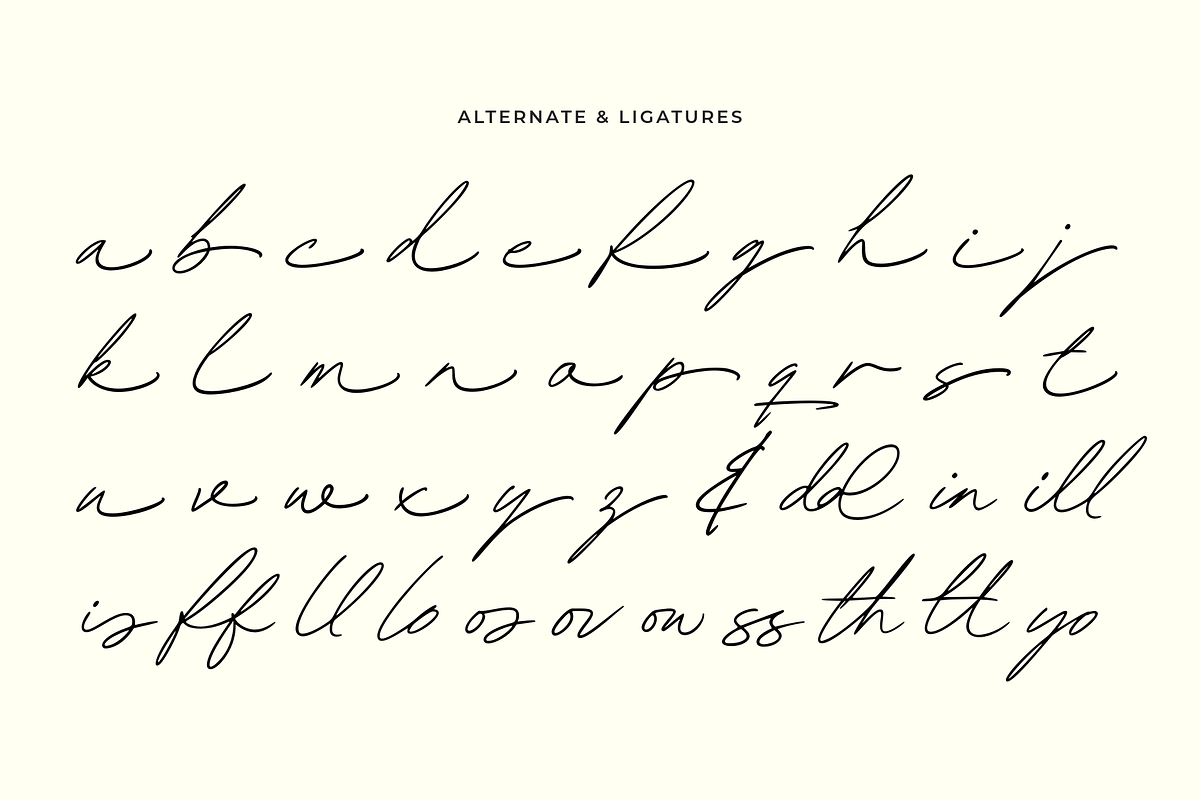 ALTERNATE & LIGATURES
a b c d e f g h i j
k l m n o p q r s t
u v w x y z & dd in ill
is ff ll lo os ov ow ss th tt yo